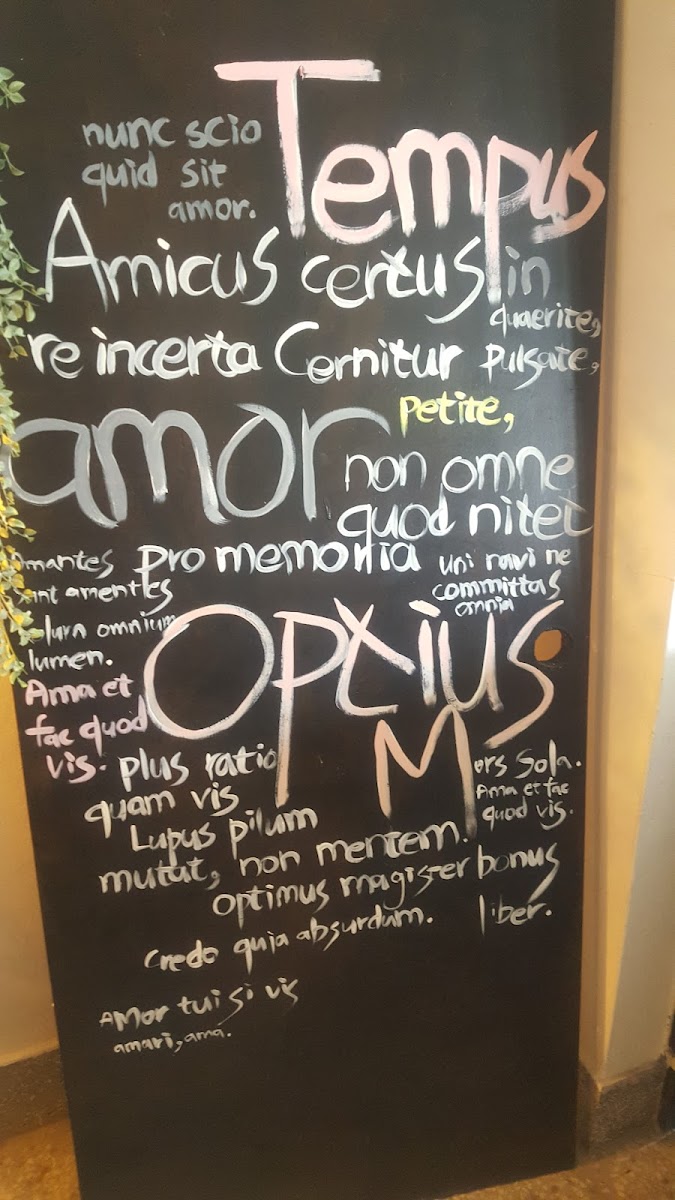 nunc scio
quid sit
amor.
Tempus
Amicus certus in
re incerta Cernitur
quaerite,
pulsate,
petite,
amor
non omne
quod nitet
Amantes
sunt amentes
pro memoria
uni navi ne
committas
omnia
omnium
lumen.
Optius
Ama et
fac quod
vis.
plus ratio
quam vis
Mors sola.
Ama et fac
quod vis.
Lupus pilum
mutat, non mentem.
optimus magister bonus
liber.
Credo quia absurdum.
Amor tui si vis
amari, ama.